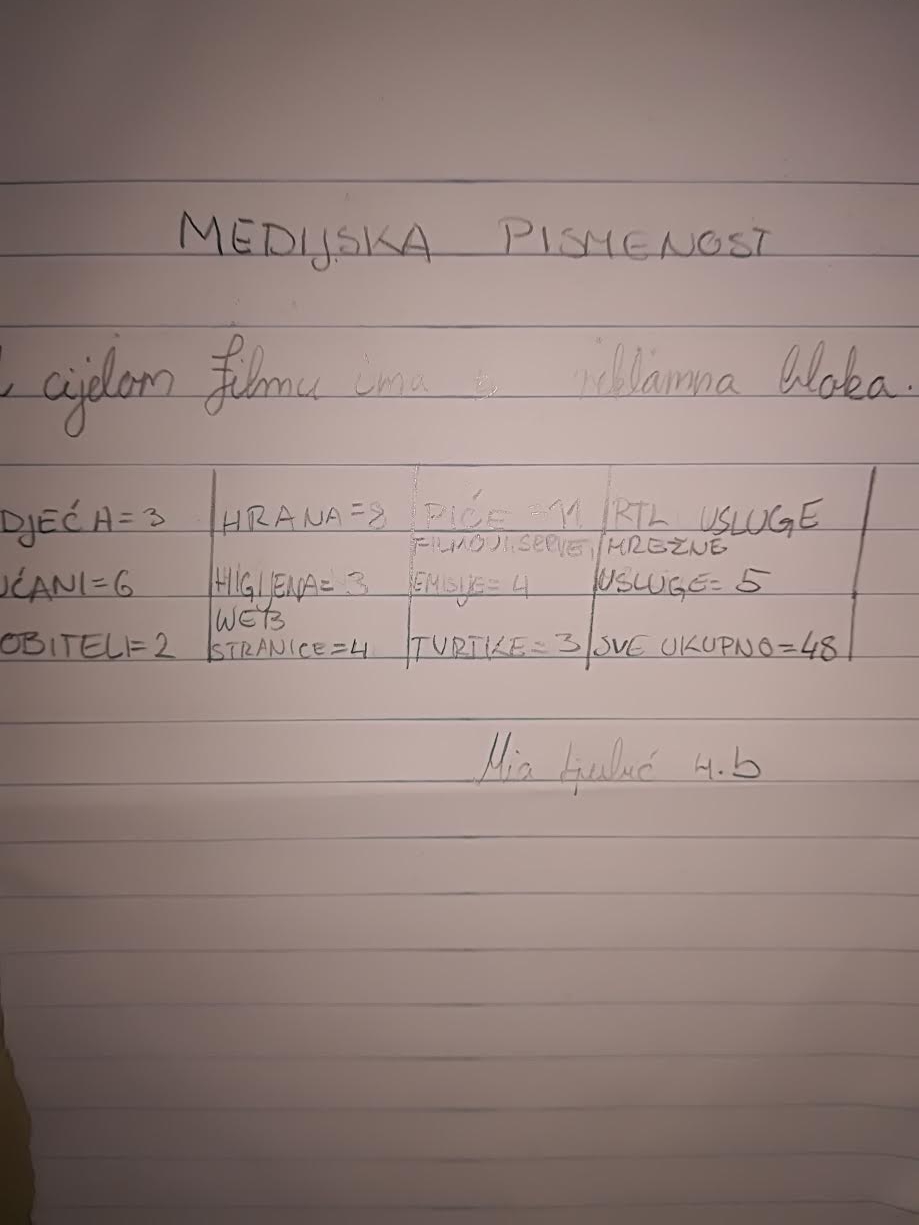 MEDIJSKA PISMENOST
cijelom filmu ima reklamna bloka.
DJEĆA=3 HRANA=8 PIĆE=11 RTL USLUGE
FILMOVI, SERIJE, MREŽNE
UĆANI=6 HIGIJENA=3 EMISIJE=4 USLUGE=5
WEB
OBITELI=2 STRANICE=4 TVRTKE=3 SVE UKUPNO=48
Mia 4.b